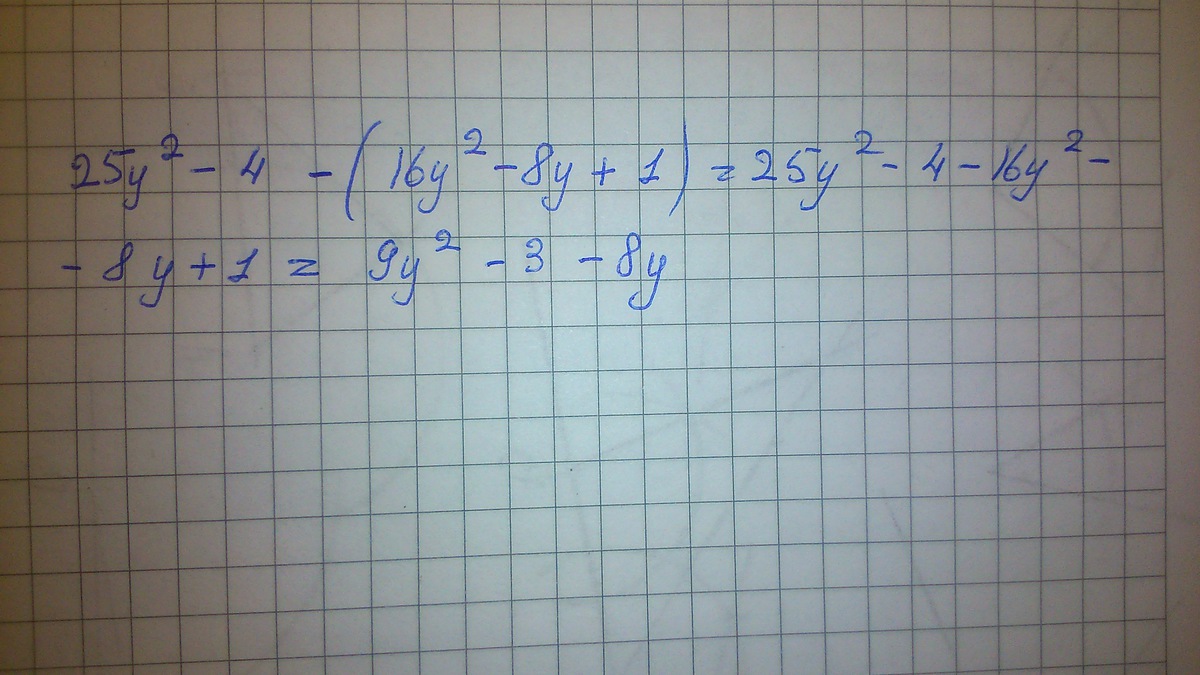 25y² - 4 - (16y² - 8y + 1) = 25y² - 4 - 16y² -
- 8y + 1 = 9y² - 3 - 8y